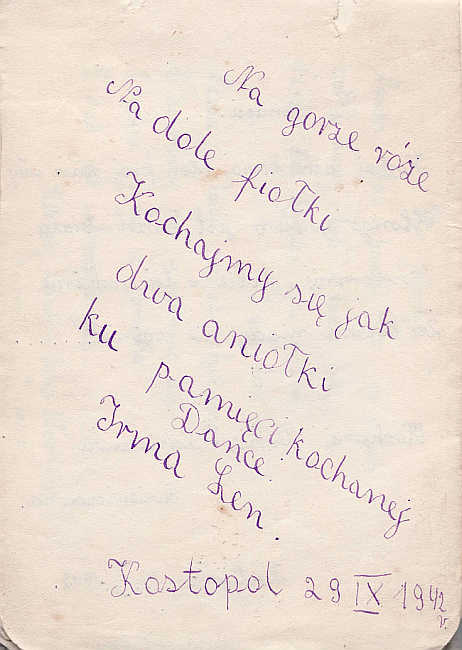 Na gorze róże
Na dole fiołki
Kochajmy się jak
dwa aniołki
ku pamięci kochanej
Dance.
Irma Len.
Kostopol 29 IX 1942
r.